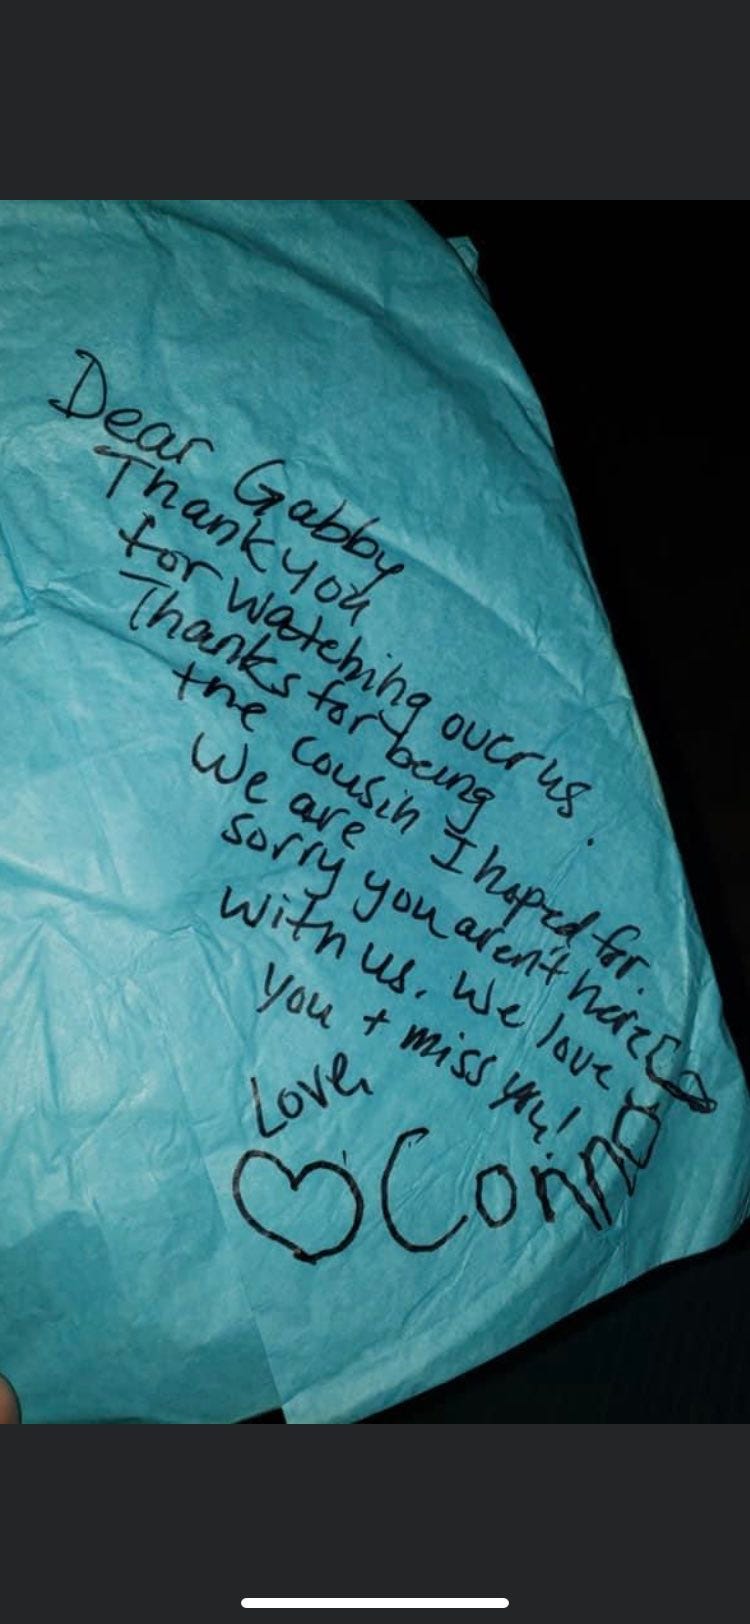 Dear Gabby
Thank you
for watching over us.
Thanks for being
the cousin I hoped for.
We are
sorry you aren't here
with us. We love
you + miss you!
Love,
Connor